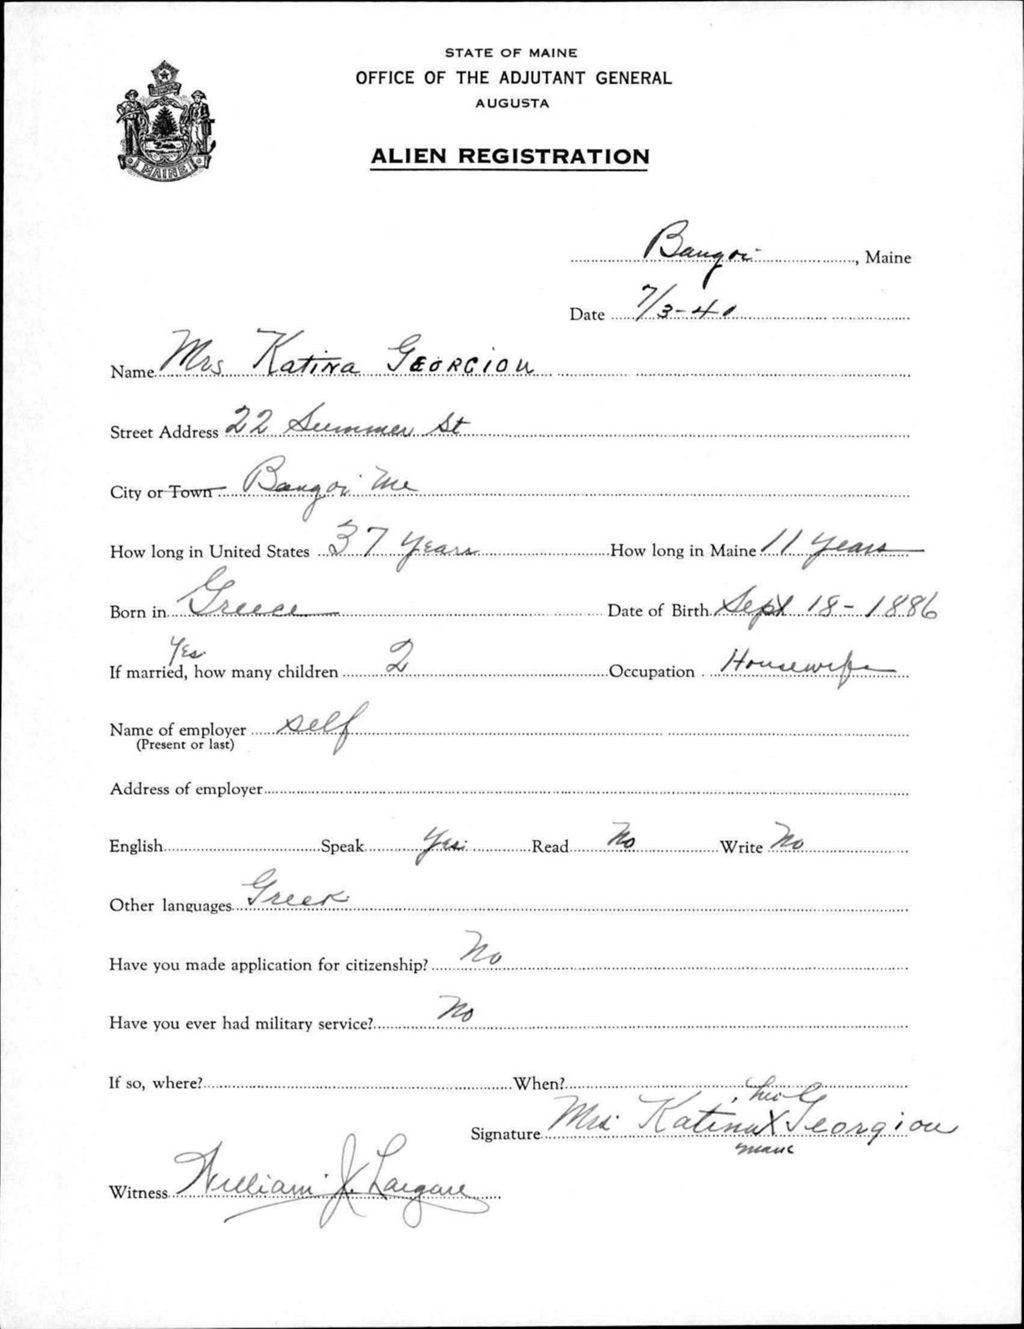 STATE OF MAINE
OFFICE OF THE ADJUTANT GENERAL
AUGUSTA
ALIEN REGISTRATION
MAINE
Bangor, Maine
Date 7/3-40
Name Mrs Katina Georgiou
Street Address 22 Summer St
City or Town Bangor Me
How long in United States 37 Years How long in Maine 11 years
Born in Greece Date of Birth Sept 18-1886
Yes
If married, how many children 2 Occupation Housewife
Name of employer self
(Present or last)
Address of employer
English Speak Yes Read No Write No
Other languages Greek
Have you made application for citizenship? No
Have you ever had military service? No
If so, where? When?
her
Signature Mrs Katina X Georgiou
mark
Witness William J.